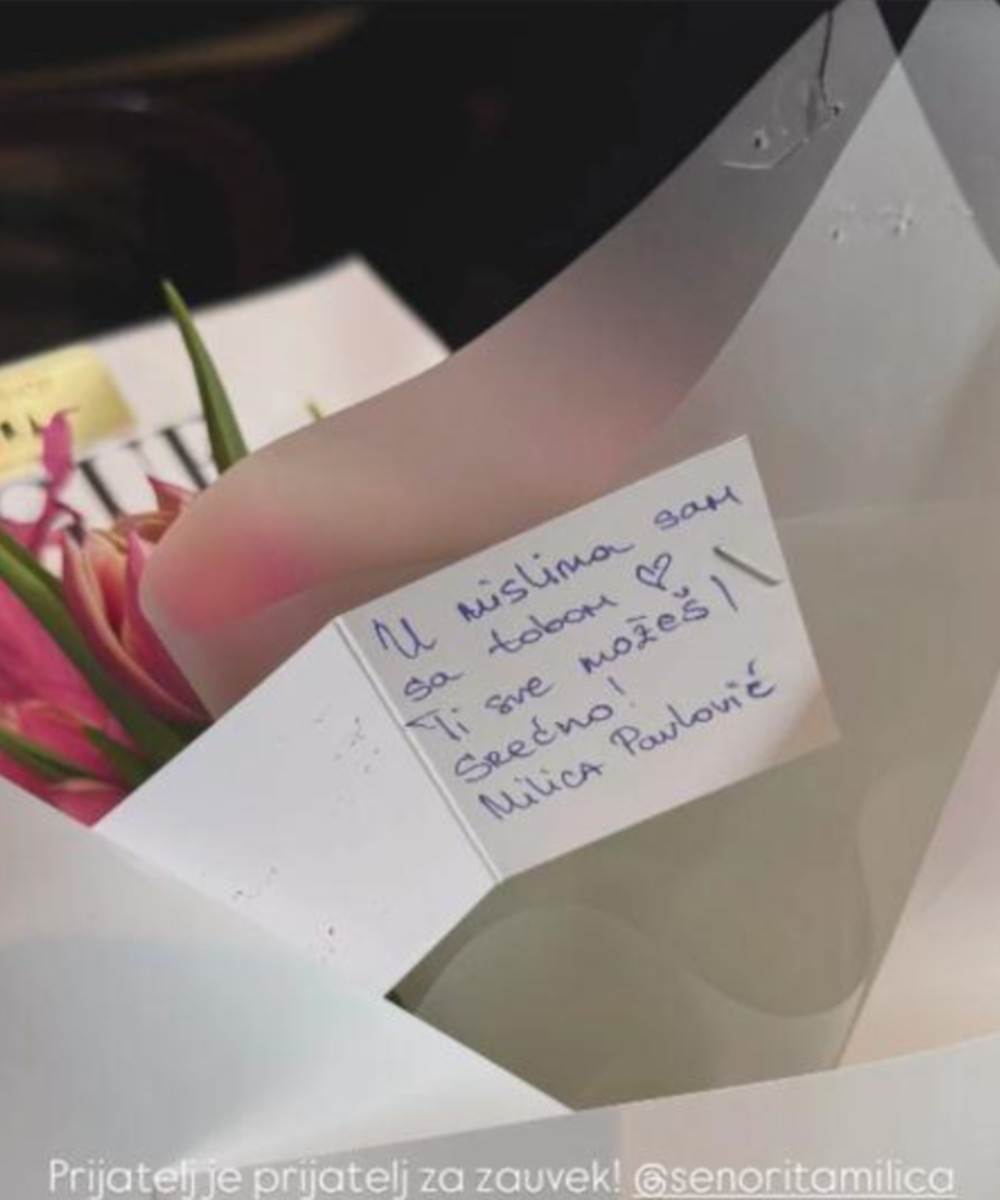 U mislima sam
sa tobom ♡
Ti sve možeš!
Srećno!
Milica Pavlović
Prijatelj je prijatelj za zauvek! @senoritamilica